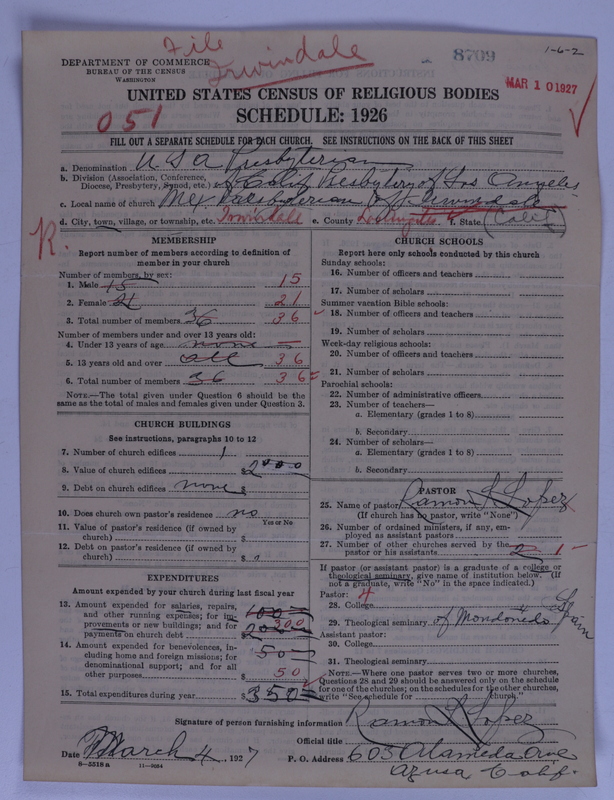 File
Irwindale
8709
1-6-2
DEPARTMENT OF COMMERCE
BUREAU OF THE CENSUS
WASHINGTON
MAR 10 1927
UNITED STATES CENSUS OF RELIGIOUS BODIES
SCHEDULE: 1926
051
FILL OUT A SEPARATE SCHEDULE FOR EACH CHURCH. SEE INSTRUCTIONS ON THE BACK OF THIS SHEET
a. Denomination U S A Presbyterian
b. Division (Association, Conference, Diocese, Presbytery, Synod, etc.) of Calif Presbytery of Los Angeles
c. Local name of church Mex. Presbyterian of Irwindale
d. City, town, village, or township, etc. Irwindale e. County Los Angeles f. State (Calif)
R.
MEMBERSHIP
Report number of members according to definition of
member in your church
Number of members, by sex:
1. Male 15 15
2. Female 21 21
3. Total number of members 36 36
Number of members under and over 13 years old:
4. Under 13 years of age none —
5. 13 years old and over all 36
6. Total number of members 36 36=
NOTE.—The total given under Question 6 should be the
same as the total of males and females given under Question 3.
CHURCH BUILDINGS
See instructions, paragraphs 10 to 12
7. Number of church edifices 1
8. Value of church edifices $2000
9. Debt on church edifices none $
10. Does church own pastor's residence no
Yes or No
11. Value of pastor's residence (if owned by
church) $
12. Debt on pastor's residence (if owned by
church) $
EXPENDITURES
Amount expended by your church during last fiscal year
13. Amount expended for salaries, repairs,
and other running expenses; for im-
provements or new buildings; and for
payments on church debt 100 200 300
14. Amount expended for benevolences, in-
cluding home and foreign missions; for
denominational support; and for all
other purposes 50 $ 50
15. Total expenditures during year $350
CHURCH SCHOOLS
Report here only schools conducted by this church
Sunday schools:
16. Number of officers and teachers
17. Number of scholars
Summer vacation Bible schools:
18. Number of officers and teachers
19. Number of scholars
Week-day religious schools:
20. Number of officers and teachers
21. Number of scholars
Parochial schools:
22. Number of administrative officers
23. Number of teachers—
a. Elementary (grades 1 to 8)
b. Secondary
24. Number of scholars—
a. Elementary (grades 1 to 8)
b. Secondary
PASTOR
25. Name of pastor Ramon L Lopez
(If church has no pastor, write "None")
26. Number of ordained ministers, if any, em-
ployed as assistant pastors
27. Number of other churches served by the
pastor or his assistants 2 1
If pastor (or assistant pastor) is a graduate of a college or
theological seminary, give name of institution below. (If
not a graduate, write "No" in the space indicated.)
Pastor: 4
28. College
29. Theological seminary of Mondonedo Spain
Assistant pastor:
30. College
31. Theological seminary
NOTE.—Where one pastor serves two or more churches,
Questions 28 and 29 should be answered only on the schedule
for one of the churches; on the schedules for the other churches,
write "See schedule for church."
Signature of person furnishing information Ramon L Lopez
Official title
Date March 4, 1927 P. O. Address 603 Alameda Ave
8-5518 a 11-9084
Azusa Calif.